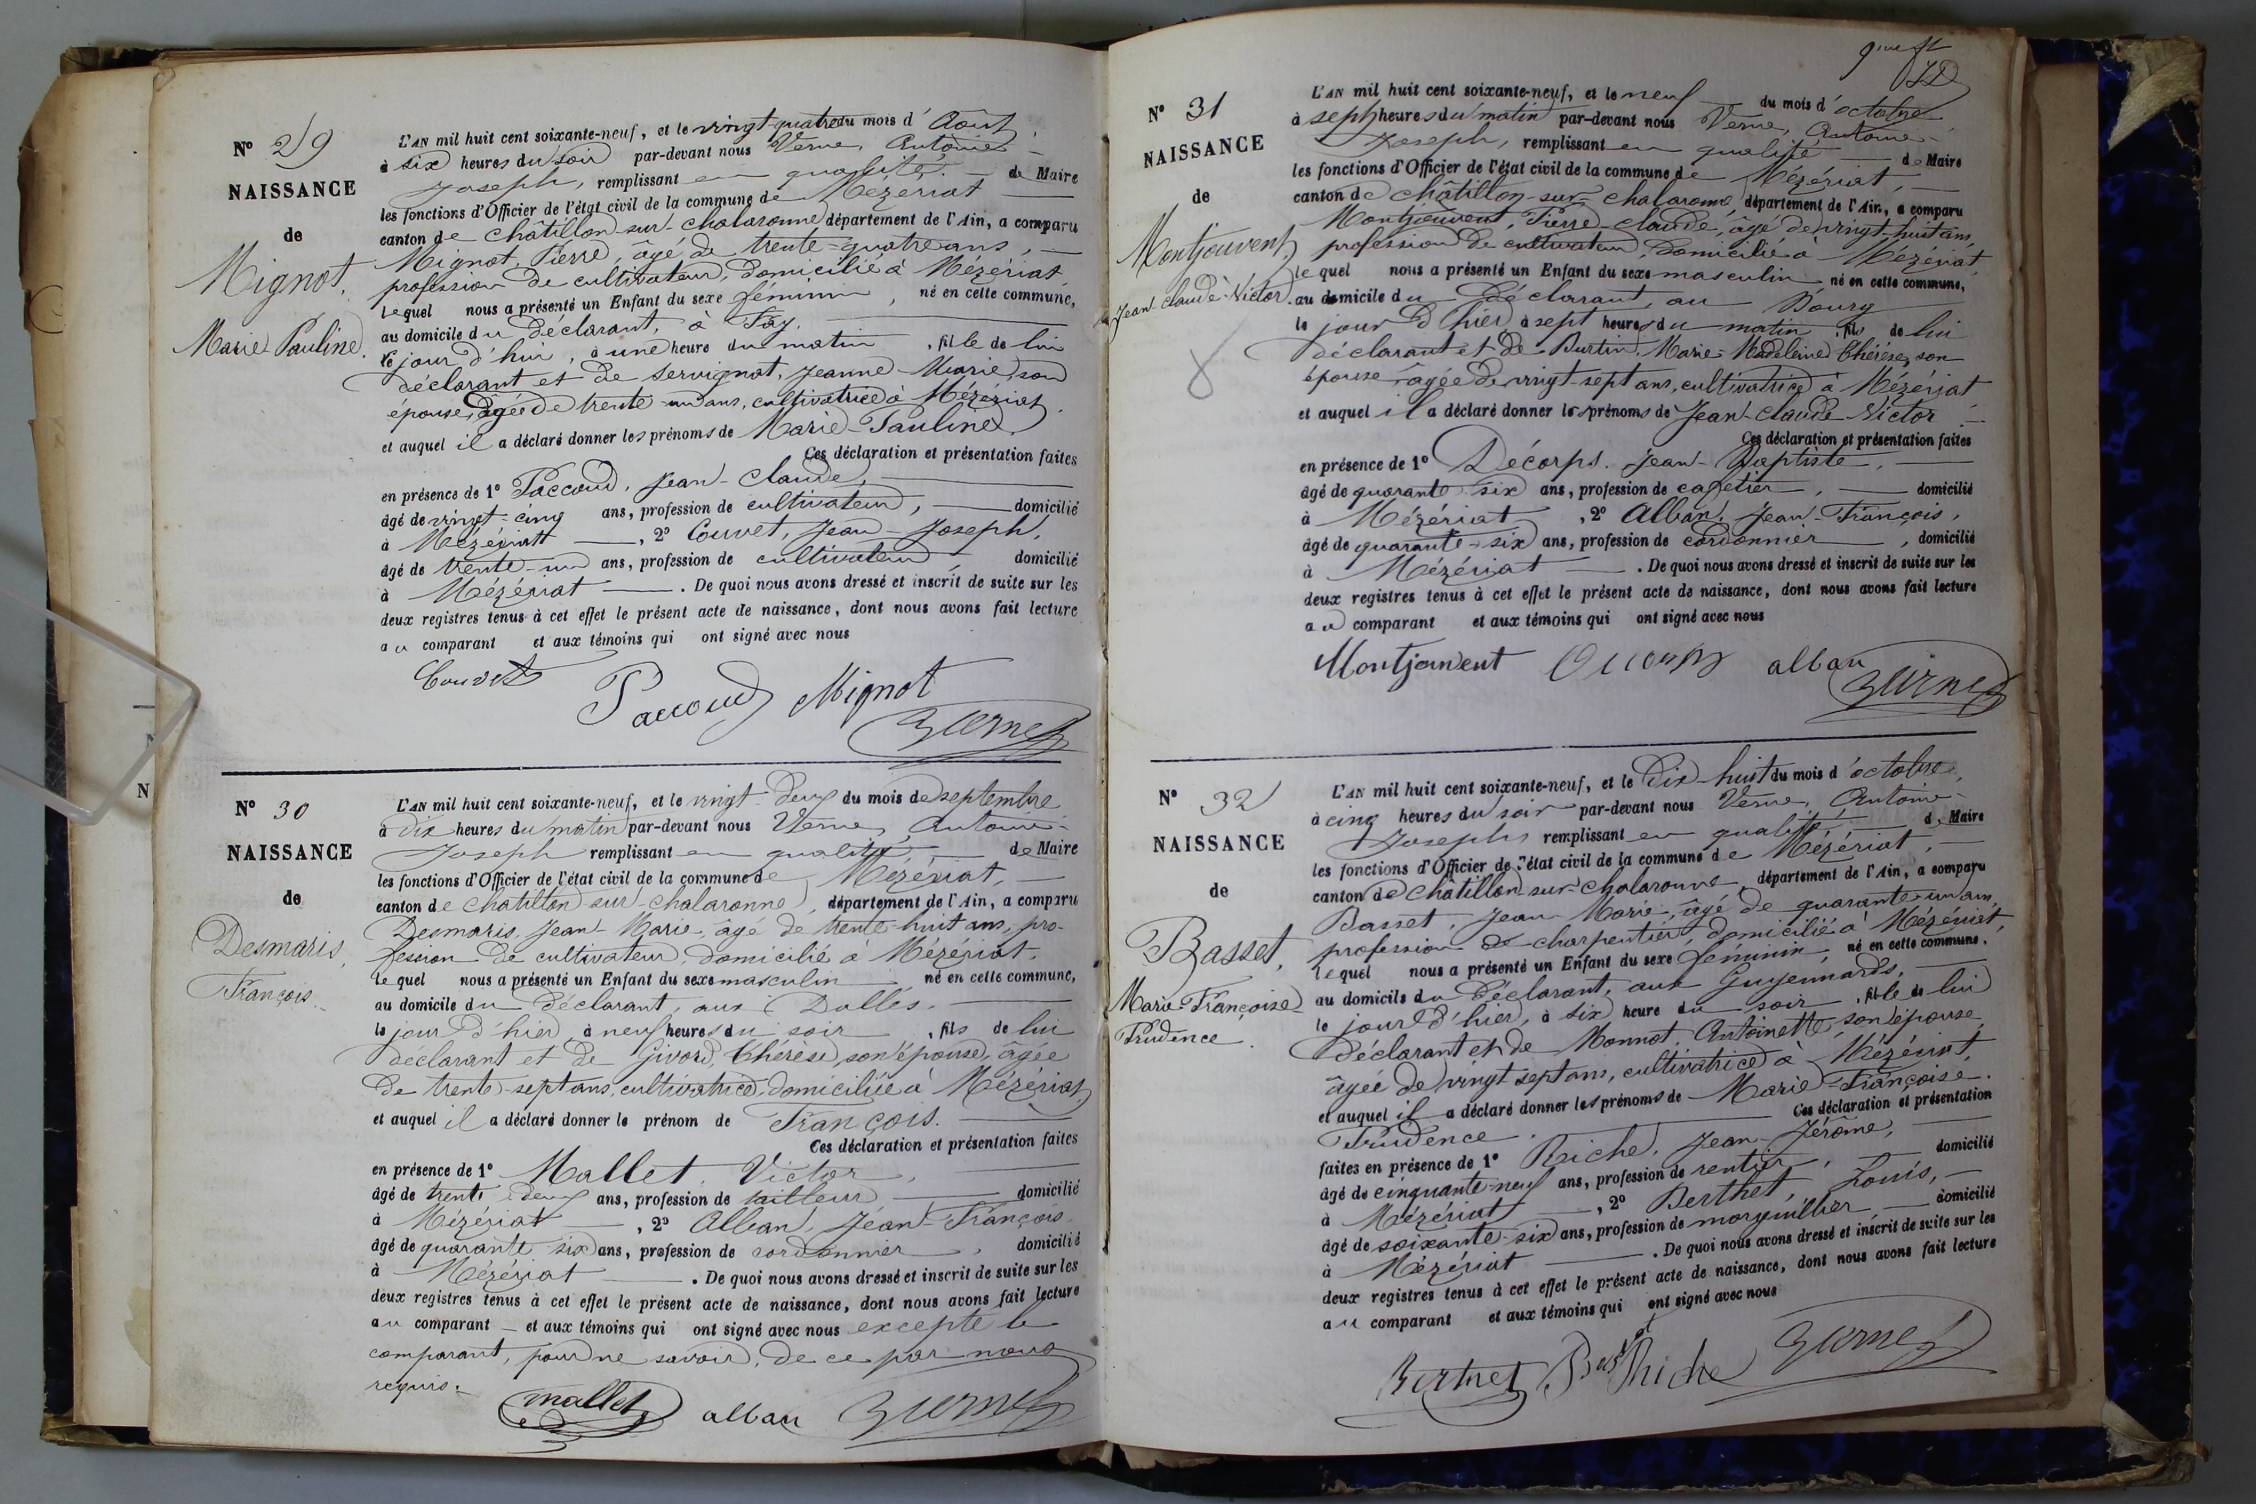 N° 29
NAISSANCE
de
Mignot,
Marie Pauline.
L'AN mil huit cent soixante-neuf, et le vingt-quatre du mois d'Août,
à six heures du soir par-devant nous Verne, Antoine-
Joseph, remplissant en qualité de Maire
les fonctions d'Officier de l'état civil de la commune de Mézériat
canton de Châtillon-sur-Chalaronne département de l'Ain, a comparu
Mignot, Pierre, âgé de trente-quatre ans,
profession de cultivateur, domicilié à Mézériat
lequel nous a présenté un Enfant du sexe féminin, né en cette commune,
au domicile du déclarant, à Fay,
le jour d'hui, à une heure du matin, fille de lui
déclarant et de Servignat, Jeanne-Marie, son
épouse, âgée de trente-un ans, cultivatrice à Mézériat,
et auquel il a déclaré donner les prénoms de Marie-Pauline.
Ces déclaration et présentation faites
en présence de 1° Paccoud, Jean-Claude,
âgé de vingt-cinq ans, profession de cultivateur, domicilié
à Mézériat, 2° Couvet, Jean-Joseph,
âgé de trente-un ans, profession de cultivateur domicilié
à Mézériat. De quoi nous avons dressé et inscrit de suite sur les
deux registres tenus à cet effet le présent acte de naissance, dont nous avons fait lecture
au comparant et aux témoins qui ont signé avec nous
Couvet Paccoud Mignot
Verne
N° 30
NAISSANCE
de
Desmaris,
François.
L'AN mil huit cent soixante-neuf, et le vingt-deux du mois de septembre
à dix heures du matin par-devant nous Verne, Antoine-
Joseph remplissant en qualité, de Maire
les fonctions d'Officier de l'état civil de la commune de Mézériat,
canton de Châtillon-sur-Chalaronne, département de l'Ain, a comparu
Desmaris, Jean-Marie, âgé de trente-huit ans, pro-
fession de cultivateur, domicilié à Mézériat,
lequel nous a présenté un Enfant du sexe masculin né en cette commune,
au domicile du déclarant, aux Dalles.
le jour d'hier, à neuf heures du soir, fils de lui
déclarant et de Givord, Thérèse, son épouse, âgée
de trente-sept ans, cultivatrice, domiciliée à Mézériat,
et auquel il a déclaré donner le prénom de François.
Ces déclaration et présentation faites
en présence de 1° Mallet, Victor,
âgé de trente-deux ans, profession de tailleur domicilié
à Mézériat, 2° Alban, Jean-François,
âgé de quarante-six ans, profession de cordonnier, domicilié
à Mézériat. De quoi nous avons dressé et inscrit de suite sur les
deux registres tenus à cet effet le présent acte de naissance, dont nous avons fait lecture
au comparant et aux témoins qui ont signé avec nous excepté le
comparant, pour ne savoir, de ce par nous
requis.
mallet alban Verne
9me ft
N° 31
NAISSANCE
de
Montjouvent,
Jean-Claude-Victor.
L'AN mil huit cent soixante-neuf, et le neuf du mois d'octobre
à sept heures du matin par-devant nous Verne, Antoine-
Joseph, remplissant en qualité de Maire
les fonctions d'Officier de l'état civil de la commune de Mézériat,
canton de Châtillon-sur-Chalaronne, département de l'Ain, a comparu
Montjouvent, Pierre-Claude, âgé de vingt-huit ans,
profession de cultivateur, domicilié à Mézériat,
lequel nous a présenté un Enfant du sexe masculin né en cette commune,
au domicile du déclarant, au Bourg
le jour d'hier à sept heures du matin, fils de lui
déclarant et de Burtin, Marie-Madeleine Thérèse, son
épouse âgée de vingt-sept ans, cultivatrice à Mézériat
et auquel il a déclaré donner les prénoms de Jean-Claude-Victor
Ces déclaration et présentation faites
en présence de 1° Décorps, Jean-Baptiste,
âgé de quarante-six ans, profession de cafetier, domicilié
à Mézériat, 2° Alban, Jean-François,
âgé de quarante-six ans, profession de cordonnier, domicilié
à Mézériat. De quoi nous avons dressé et inscrit de suite sur les
deux registres tenus à cet effet le présent acte de naissance, dont nous avons fait lecture
au comparant et aux témoins qui ont signé avec nous
Montjouvent alban
Verne
N° 32
NAISSANCE
de
Basset,
Marie-Françoise-
Prudence.
L'AN mil huit cent soixante-neuf, et le dix-huit du mois d'octobre,
à cinq heures du soir par-devant nous Verne, Antoine-
Joseph, remplissant en qualité, de Maire
les fonctions d'Officier de l'état civil de la commune de Mézériat,
canton de Châtillon-sur-Chalaronne, département de l'Ain, a comparu
Basset, Jean-Marie, âgé de quarante-un ans,
profession de charpentier, domicilié à Mézériat,
lequel nous a présenté un Enfant du sexe féminin, né en cette commune,
au domicile du déclarant, aux Guyennards,
le jour d'hier, à six heure du soir, fille de lui
déclarant et de Monnot, Antoinette, son épouse,
âgée de vingt sept ans, cultivatrice à Mézériat,
et auquel il a déclaré donner les prénoms de Marie-Françoise-
Prudence. Ces déclaration et présentation
faites en présence de 1° Riche, Jean-Jérôme,
âgé de cinquante-neuf ans, profession de rentier, domicilié
à Mézériat, 2° Berthet, Louis,
âgé de soixante-six ans, profession de marguillier, domicilié
à Mézériat. De quoi nous avons dressé et inscrit de suite sur les
deux registres tenus à cet effet le présent acte de naissance, dont nous avons fait lecture
au comparant et aux témoins qui ont signé avec nous
Berthet Basset Riche Verne